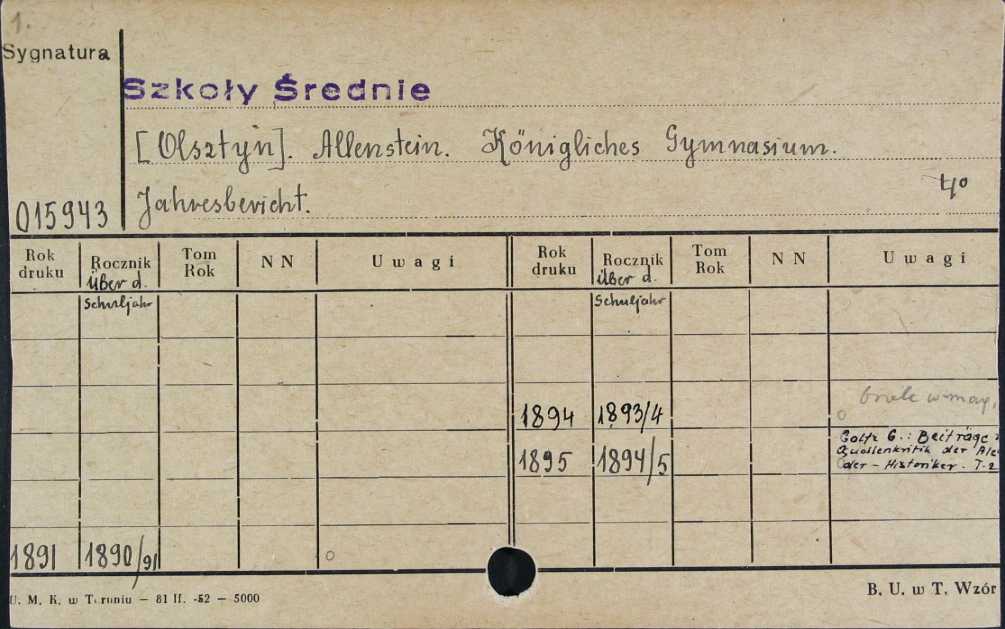 1.
Sygnatura
Szkoły Średnie
[Olsztyn]. Allenstein. Königliches Gymnasium.
4°
015943 Jahresbericht.
Rok druku Rocznik Tom Rok N N Uwagi Rok druku Rocznik Tom Rok N N Uwagi
Über d. Über d.
Schuljahr Schuljahr
1894 1893/4 w mag.
1895 1894/5 Goltz G.: Beiträge
Quellenkritik der Ale
der-Historiker. T. 2
1891 1890/91
U. M. K. w Toruniu — 81 II. -52 — 5000
B. U. w T. Wzór